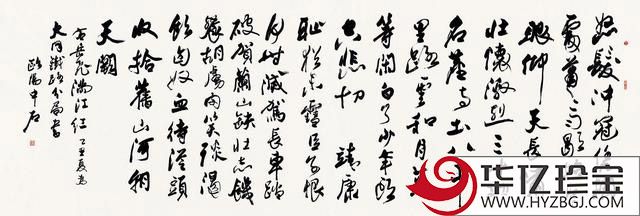 怒髮冲冠
處萧萧雨歇
眼仰天長
壮懷激烈三十
名塵与土八千
里路雲和月莫
等闲白了少年頭
空悲切 靖康
耻猶未雪臣子恨
何时滅駕長車踏
破賀蘭山缺壮志饑
餐胡虜肉笑談渴
飲匈奴血待從頭
收拾舊山河朝
天闕
右岳飛滿江红 乙亥夏為
大同鐵路分局書
欧陽中石
华亿珍宝
WWW.HYZBGJ.COM